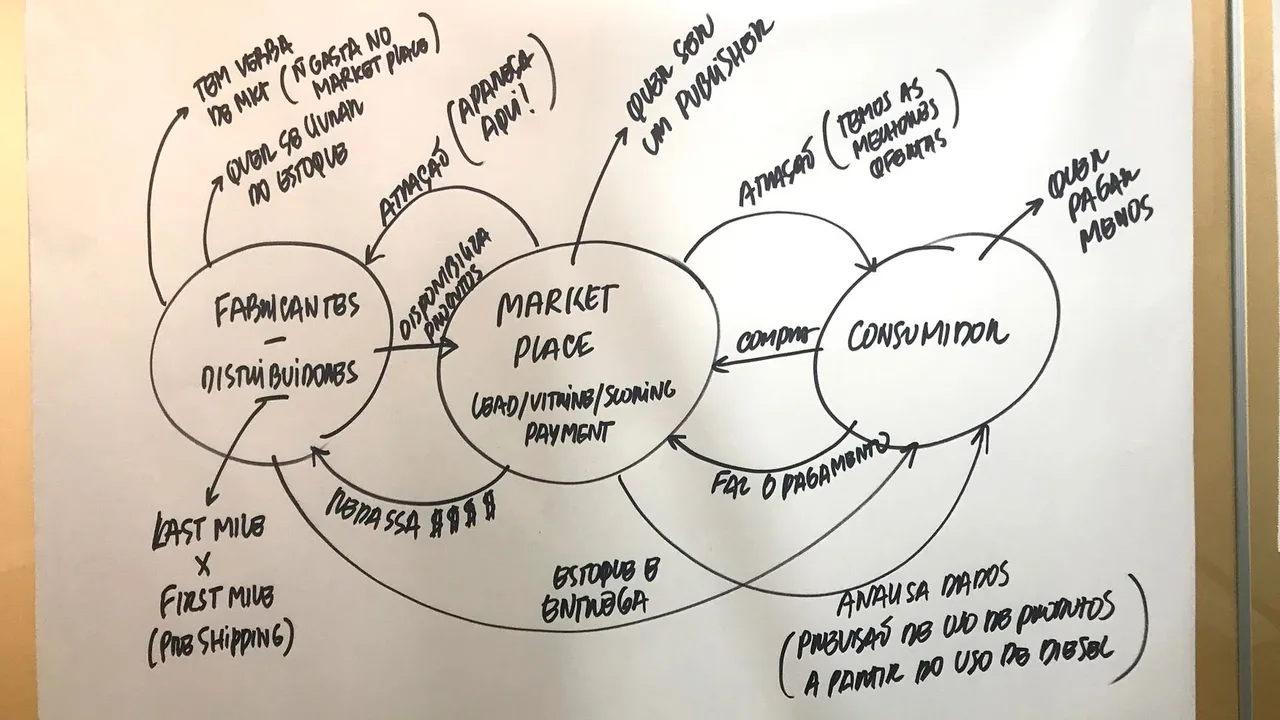 TEM VERBA
DE MKT (Ñ GASTA NO
MARKET PLACE)
QUER SE LIVRAR
DO ESTOQUE
ATRAÇÃO (APAREÇA
AQUI!)
QUER SER
UM PUBLISHER
ATRAÇÃO (TEMOS AS
MELHORES
OFERTAS)
QUER
PAGAR
MENOS
FABRICANTES
-
DISTRIBUIDORES
DISPONIBILIZA
PRODUTOS
MARKET
PLACE
LEAD/VITRINE/SCORING
PAYMENT
COMPRA
CONSUMIDOR
FAZ O PAGAMENTO
REPASSA $$$$
LAST MILE
X
FIRST MILE
(PRE SHIPPING)
ESTOQUE E
ENTREGA
ANALISA DADOS
(PREVISÃO DE USO DE PRODUTOS
A PARTIR DO USO DE DIESEL)